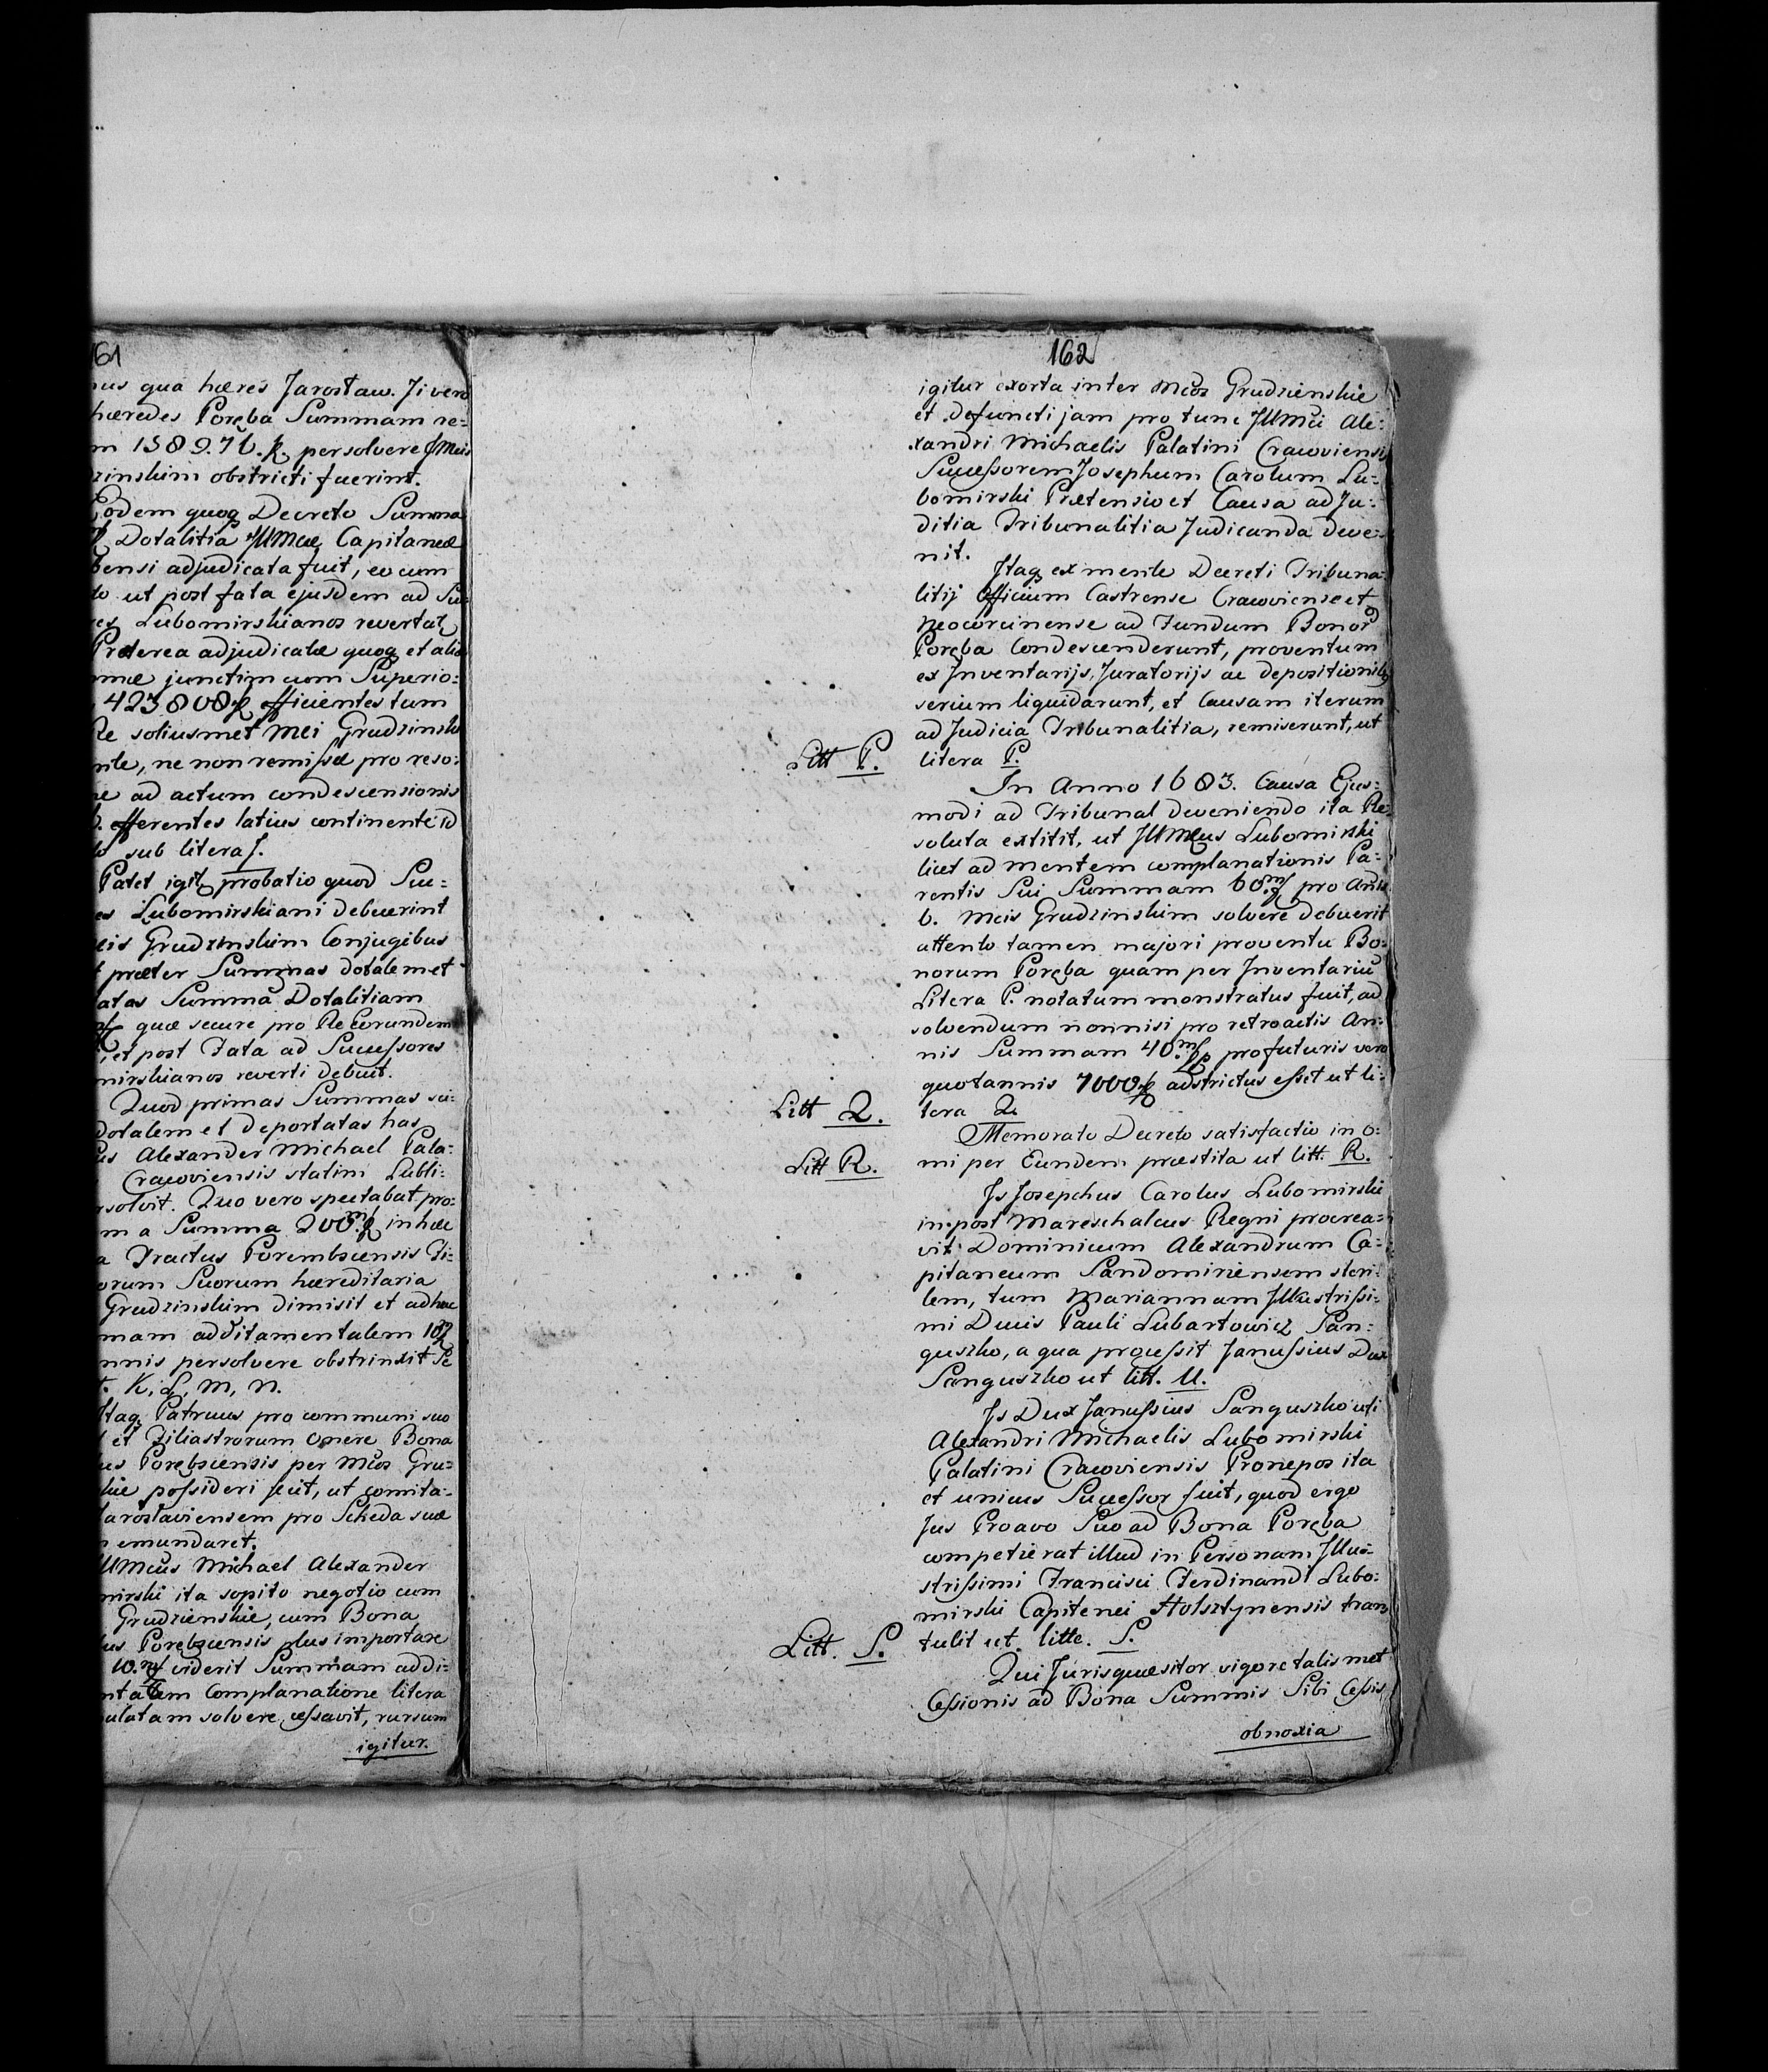 161
nus qua hæres Jarostaw. Ji vero
hæredes Poręba Summam re=
persolvere
zinskim obstricti fuerint.
Eodem quoq Decreto Summa
Dotalitia Capitaneæ
bensi adjudicata fuit, eo cum
to ut post fata ejusdem ad
Lubomirskianos revertat
Præterea adjudicatæ quoq et
junctim cum Superio=
423808 efficientes tum
Re soliusmet mei
ne non remissæ pro reso=
ad actum condescensionis
efferentes latius continente id
sub litera J.
Patet igit probatio quod Suc=
es Lubomirskiani debuerint
Grudzinskim Conjugibus
præter Summas dotalem et
atas Summa Dotalitiam
quæ secure pro Re Eorundem
et post Fata ad Successores
mirskianos reverti debuit.
Quod primas Summas sci=
dotalem et deportatas has
us Alexander Michael Pala=
Cracoviensis statim Lubli=
solvit. Quo vero spectabat pro=
m a Summa 200 in hæc
a Tractus Porembscensis Fi=
orum Suorum hæreditaria
Grudzinskim dimisit et adhuc
mam additamentalem
nnis persolvere obstrinxit Se
K, L, M, N.
Itaq Patruus pro communi suo
et Filiastrorum onere Bona
us Porębscensis per Gru=
possideri fecit, ut comita=
Jaroslaviensem pro Scheda suæ
emundaret.
Michael Alexander
mirski ita sopito negotio cum
Grudzienskie, cum Bona
us Porębscensis plus importare
10. viderit Summam addi=
ntalem Complanatione litera
ulatam solvere cessavit, rursum
igitur.
162
igitur exorta inter Mcos Grudzienskie
et defuncti jam pro tunc Illmi Ale=
xandri Michaelis Palatini Cracoviensis
Successorem Josephum Carolum Lu=
bomirski Prætensio et Causa ad Ju=
ditia Tribunalitia Judicanda deve=
nit.
Itaq ex mente Decreti Tribuna=
litij Officium Castrense Cracoviense et
Neocorcinense ad Fundum Bonor
Poręba Condescenderunt, proventum
ex Inventarijs, Juratorijs ac depositionib
serium liquidarunt, et Causam iterum
ad Judicia Tribunalitia, remiserunt, ut
Litt P. litera P.
In Anno 1683. Causa Ejus=
modi ad Tribunal deveniendo ita Re=
soluta extitit, ut Lubomirski
licet ad mentem complanationis Pa=
rentis Sui Summam 60 pro
6. Mcis Grudzinskim solvere debuerit
attento tamen majori proventu Bo=
norum Poręba quam per Inventariu
Litera P. notatum monstratus fuit, ad
solvendum nonnisi pro retroactis An=
nis Summam 40 pro futuris vero
quotannis 7000 adstrictus esset ut li=
Litt Q. tera Q.
Memorato Decreto satisfactio in o=
Litt R. mi per Eundem præstita ut litt. R.
Is Josepchus Carolus Lubomirski
in post Mareschalcus Regni procrea=
vit Dominicum Alexandrum Ca=
pitaneum Sandomiriensem steri=
lem, tum Mariannam Illustrissi=
mi Ducis Pauli Lubartowicz San=
guszko, a qua processit Janussius Dux
Sanguszko ut litt. U.
Is Dux Janussius Sanguszko uti
Alexandri Michaelis Lubomirski
Palatini Cracoviensis Pronepos ita
et unicus Successor fuit, quod ergo
Jus Proavo Suo ad Bona Poręba
competierat illud in Personam Illu=
strissimi Francisci Ferdinandi Lubo=
mirski Capitenei Holsztynensis trans
Litt. S. tulit ut litte. S.
Qui Juris quæsitor vigore talismet
Cessionis ad Bona Summis Sibi Cessis
obnoxia